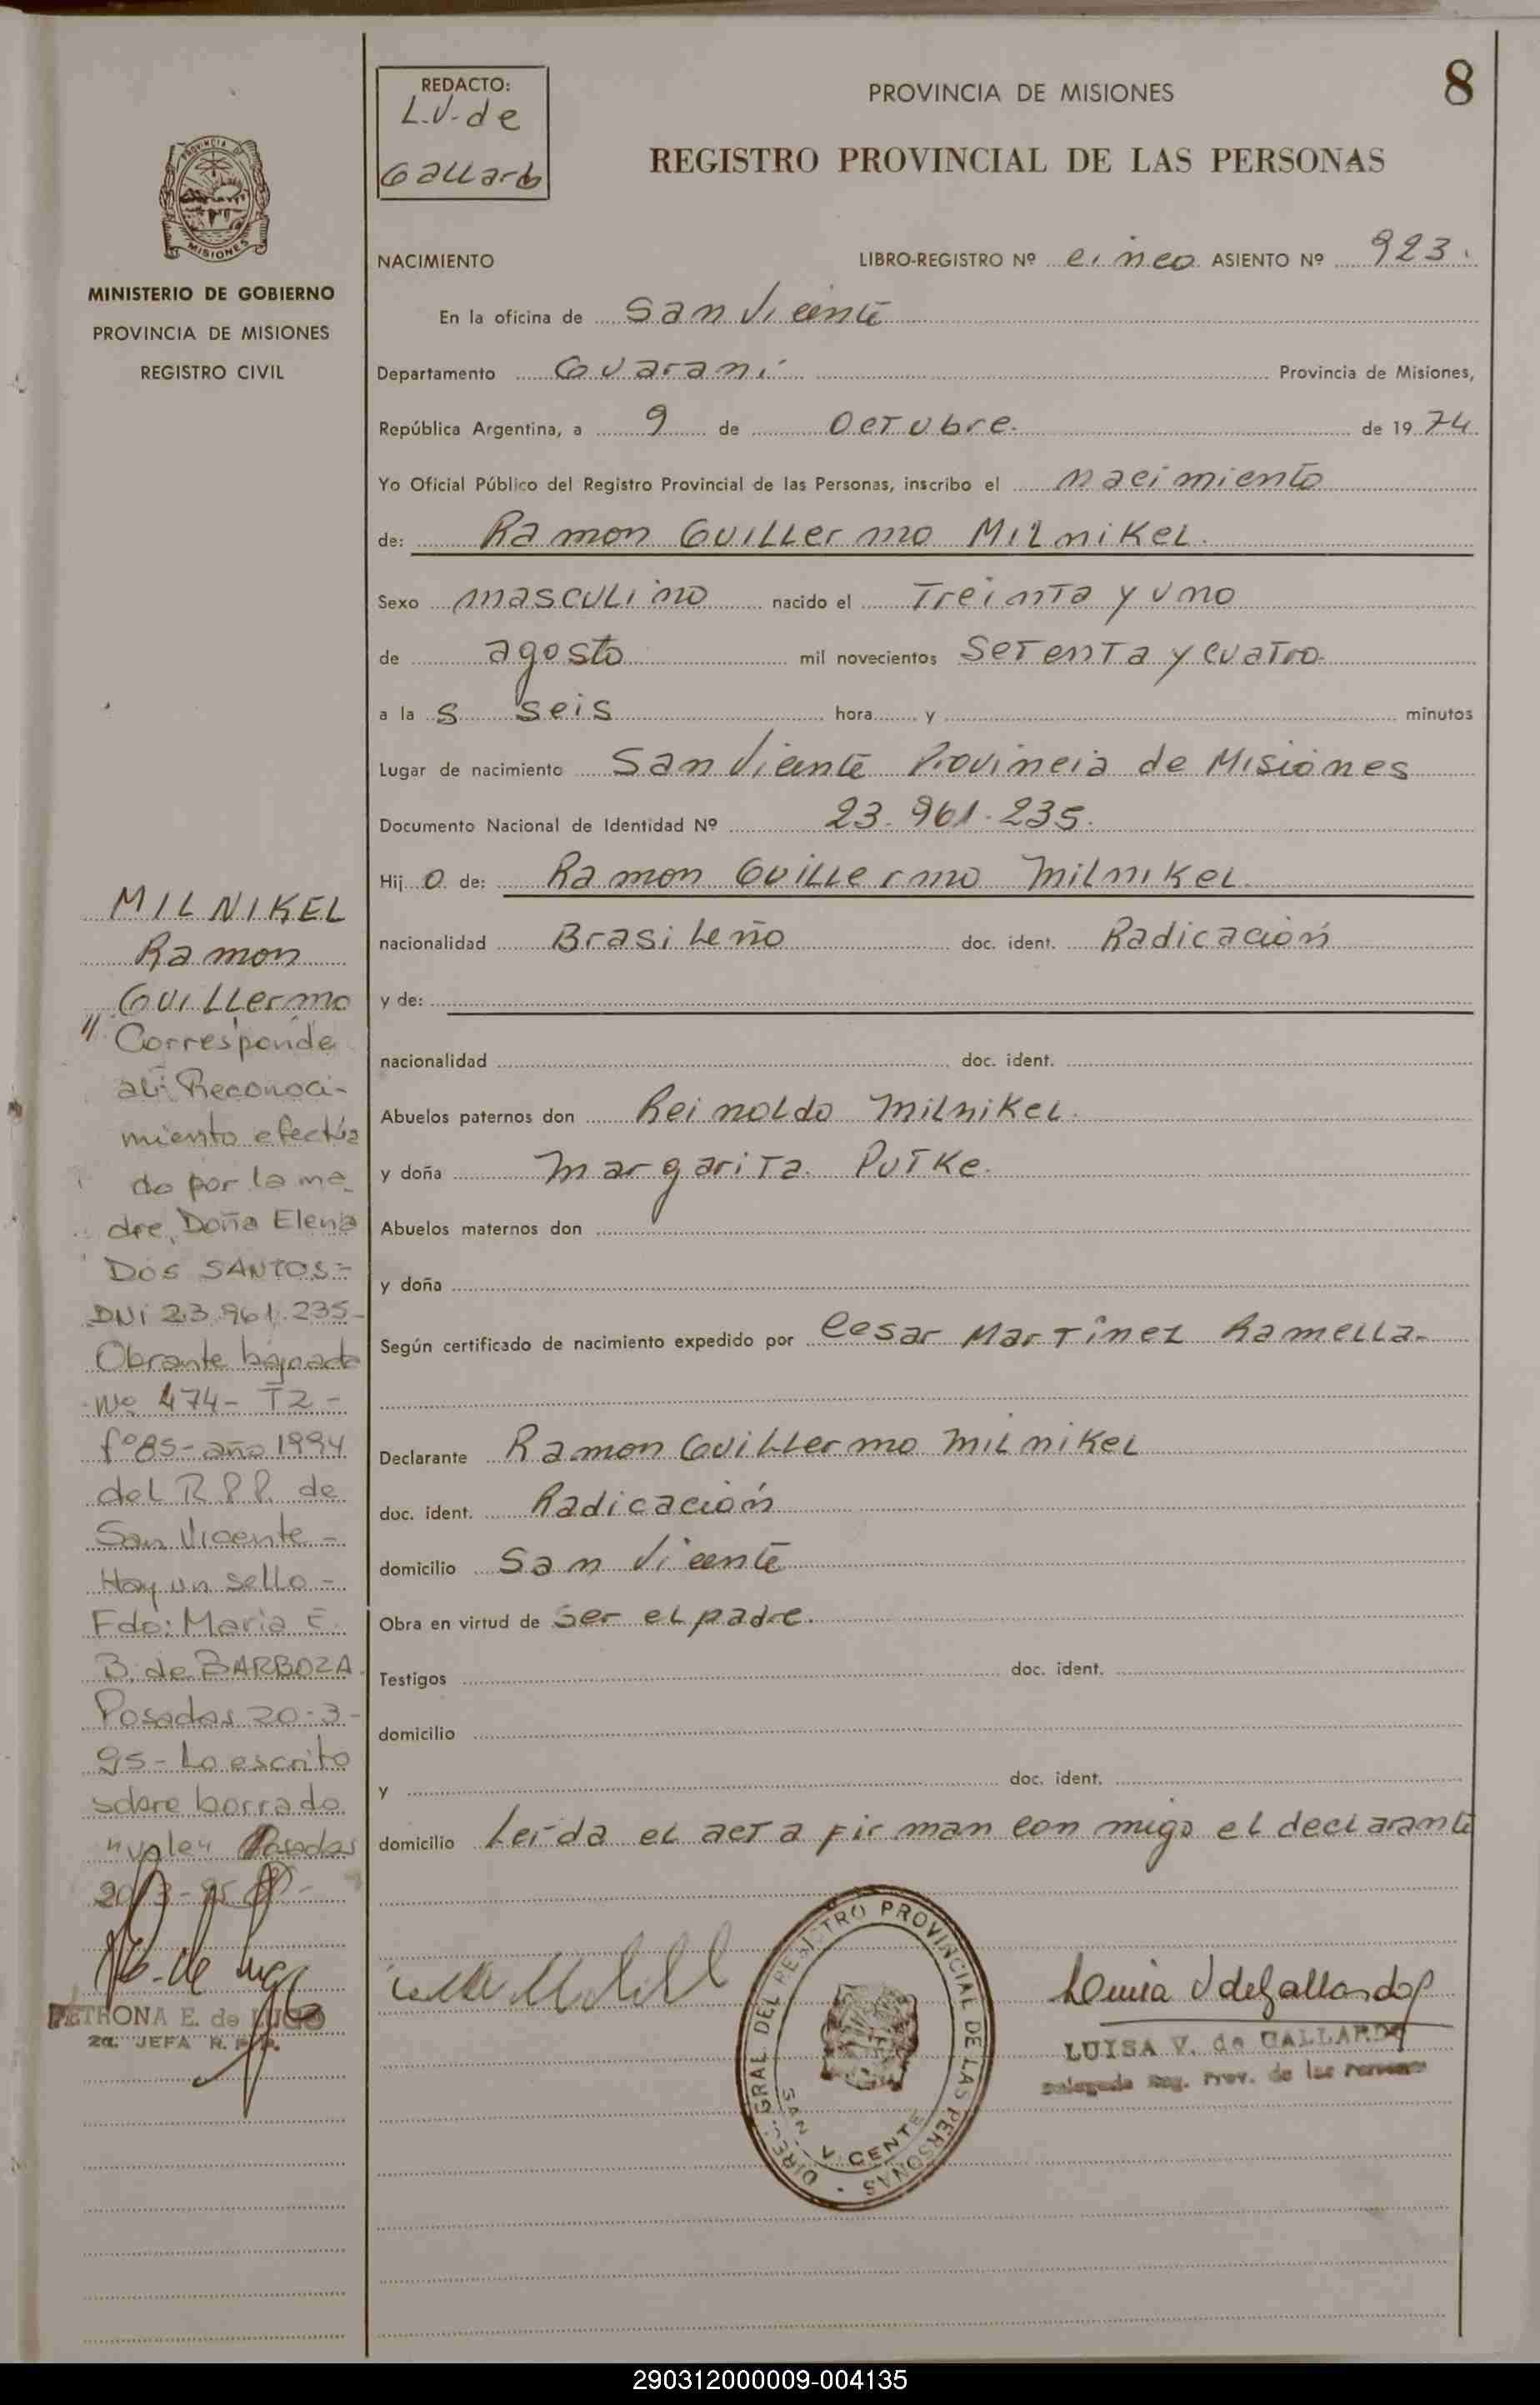 8
REDACTO:
L.V. de
Gallardo
PROVINCIA DE MISIONES
REGISTRO PROVINCIAL DE LAS PERSONAS
PROVINCIA DE
MISIONES
MINISTERIO DE GOBIERNO
PROVINCIA DE MISIONES
REGISTRO CIVIL
NACIMIENTO LIBRO-REGISTRO Nº cinco ASIENTO Nº 923.
En la oficina de San Vicente
Departamento Guaraní Provincia de Misiones,
República Argentina, a 9 de Octubre. de 1974
Yo Oficial Público del Registro Provincial de las Personas, inscribo el nacimiento
de: Ramon Guillermo Milnikel.
Sexo masculino nacido el Treinta y uno
de agosto mil novecientos setenta y cuatro
a la s seis hora y minutos
Lugar de nacimiento San Vicente Provincia de Misiones
Documento Nacional de Identidad Nº 23.961.235.
Hij o de: Ramon Guillermo Milnikel.
nacionalidad Brasileño doc. ident. Radicación
y de:
nacionalidad doc. ident.
Abuelos paternos don Reinoldo Milnikel.
y doña Margarita Putke.
Abuelos maternos don
y doña
Según certificado de nacimiento expedido por Cesar Martínez Ramella.
Declarante Ramon Guillermo Milnikel
doc. ident. Radicación
domicilio San Vicente
Obra en virtud de ser el padre.
Testigos doc. ident.
domicilio
y doc. ident.
domicilio Leída el acta firman conmigo el declarante
MILNIKEL
Ramon
Guillermo
" Corresponde
al Reconoci-
miento efectúa
do por la ma-
dre, Doña Elena
DOS SANTOS-
DNI 23.961.235-
Obrante bajo acta
Nº 474- T2-
fº 85- año 1994
del R.P.P. de
San Vicente-
Hay un sello-
Fdo: Maria E.
B. de BARBOZA.
Posadas 20-3-
95- Lo escrito
sobre borrado
"vale" Posadas
20-3-95
PETRONA E. de LUGO
2a. JEFA R. P. P.
DIREC. GRAL DEL REGISTRO PROVINCIAL DE LAS PERSONAS
SAN VICENTE
Luisa V de Gallardo
LUISA V. de GALLARDO
Delegada Reg. Prov. de las Personas
290312000009-004135